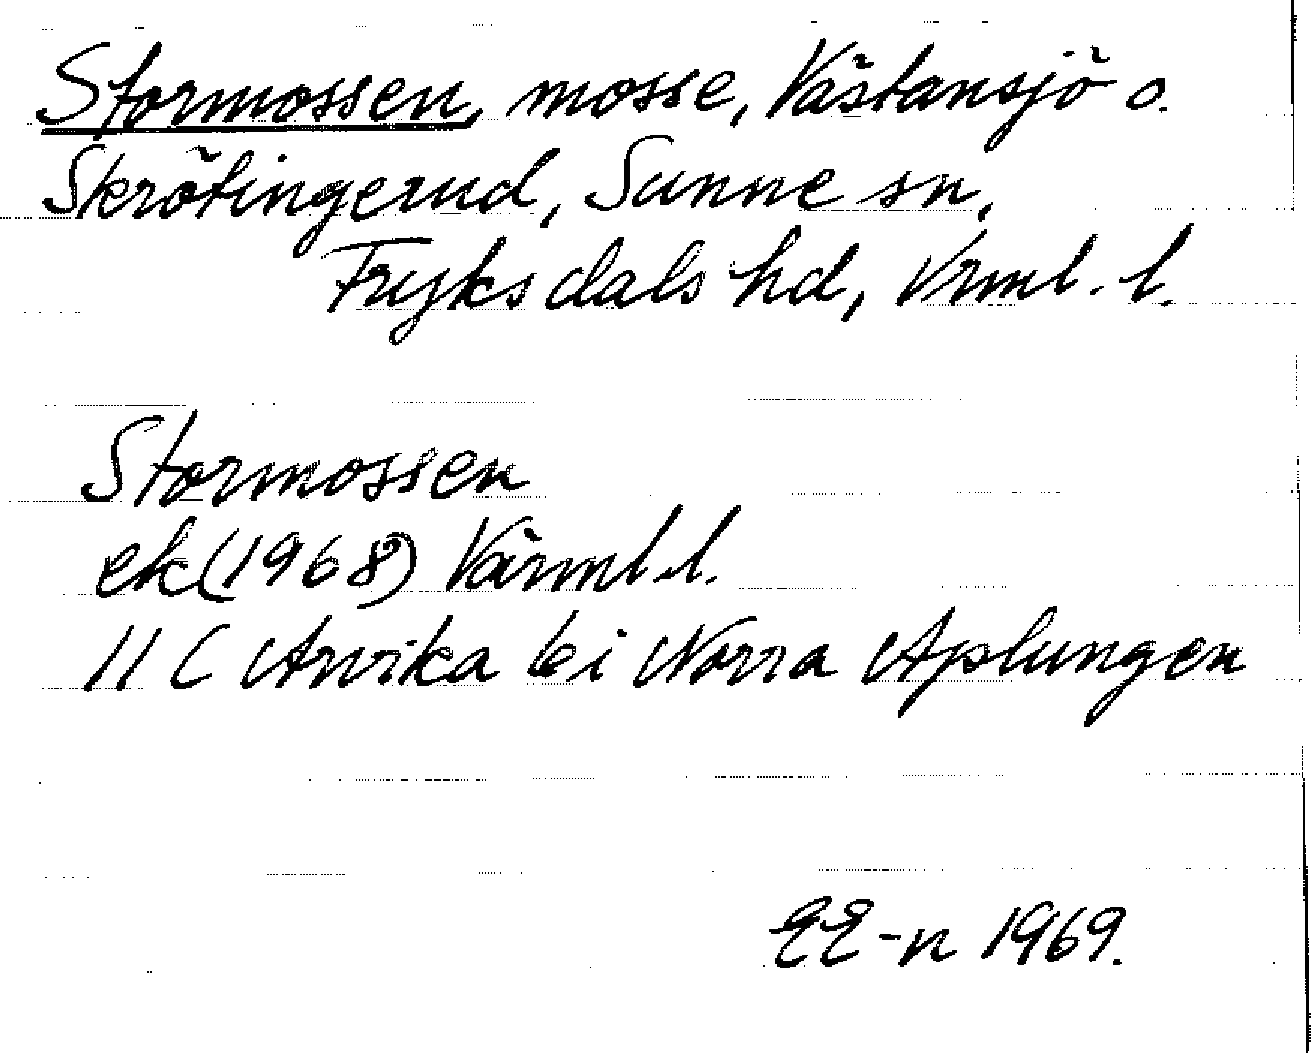 Stormossen, mosse, Västansjö o.
Skrötingerud, Sunne sn,
Fryksdals hd, Vrml. l.
Stormossen
ek(1968) Värml.l.
11 C Arvika 6i Norra Aplungen
EE-n 1969.